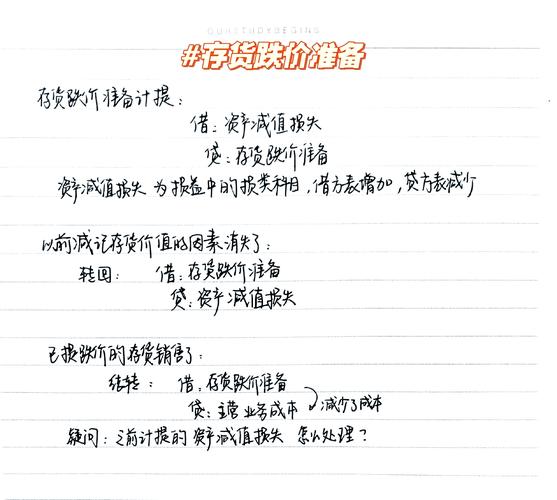 OUR STUDY BEGINS
#存货跌价准备
存货跌价准备计提：
借：资产减值损失
贷：存货跌价准备
资产减值损失 为损益中的损类科目，借方表增加，贷方表减少
以前减记存货价值的因素消失了：
转回： 借：存货跌价准备
贷：资产减值损失
已提跌价的存货销售了：
结转： 借：存货跌价准备
贷：主营业务成本 减少了成本
疑问：之前计提的资产减值损失 怎么处理？